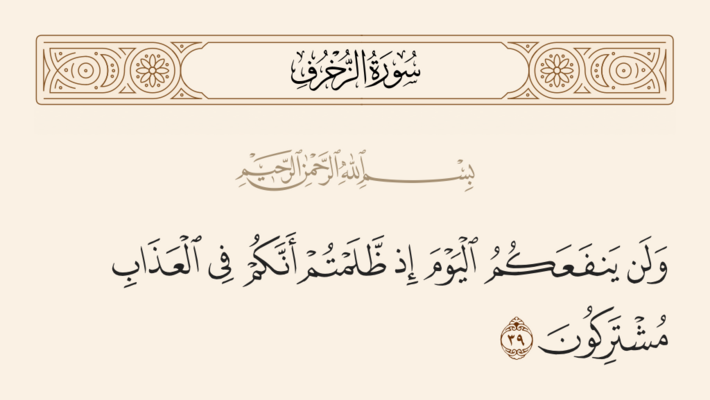 سُورَةُ الزُّخْرُفِ
بِسْمِ اللَّهِ الرَّحْمَٰنِ الرَّحِيمِ
وَلَن يَنفَعَكُمُ ٱلْيَوْمَ إِذ ظَّلَمْتُمْ أَنَّكُمْ فِى ٱلْعَذَابِ
مُشْتَرِكُونَ ٣٩